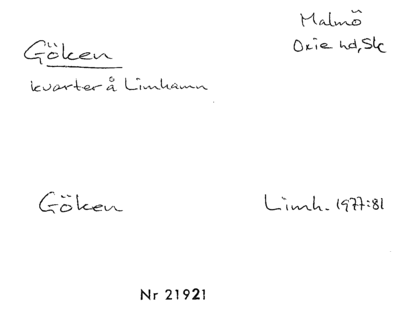 Malmö
Göken
Oxie hd, Sk
kvarter å Limhamn
Göken Limh. 1977:81
Nr 21921